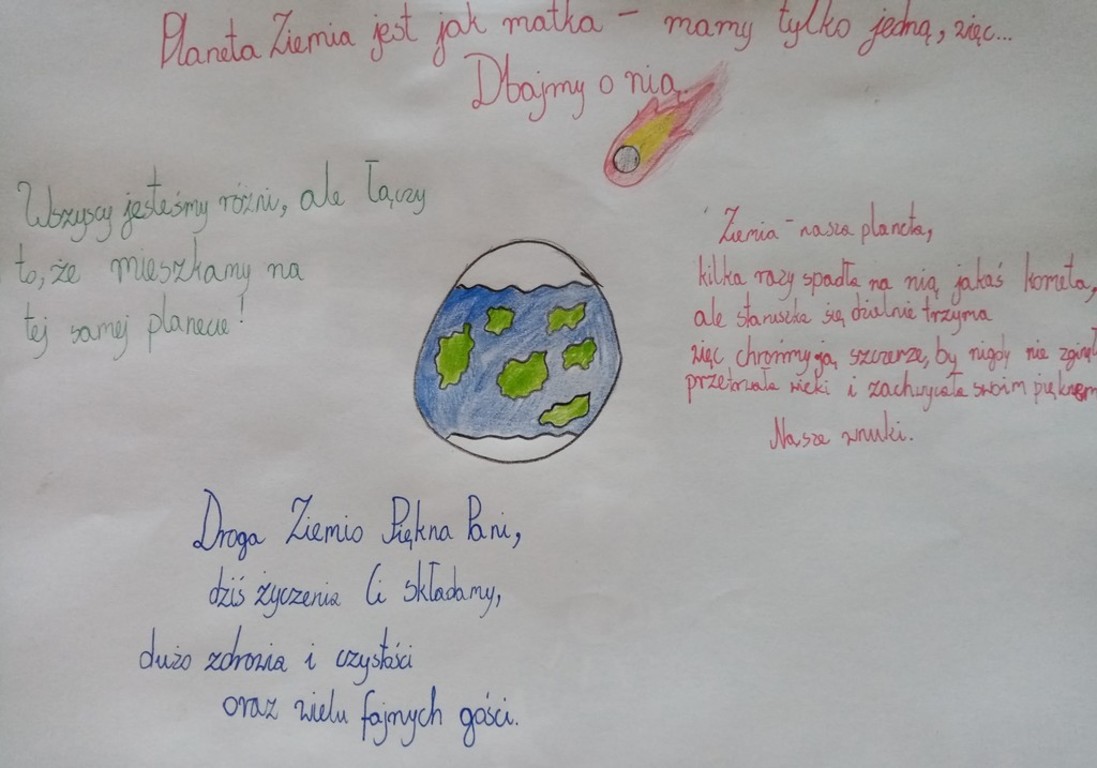 Planeta Ziemia jest jak matka - mamy tylko jedną, więc...
Dbajmy o nią.
Wszyscy jesteśmy różni, ale łączy
to, że mieszkamy na
tej samej planecie!
Ziemia - nasza planeta,
kilka razy spadła na nią jakaś kometa,
ale staruszka się dzielnie trzyma
więc chrońmy ją szczerze, by nigdy nie zginęła
przetrwała wieki i zachwycała swoim pięknem
Nasze wnuki.
Droga Ziemio Piękna Pani,
dziś życzenia Ci składamy,
dużo zdrowia i czystości
oraz wielu fajnych gości.